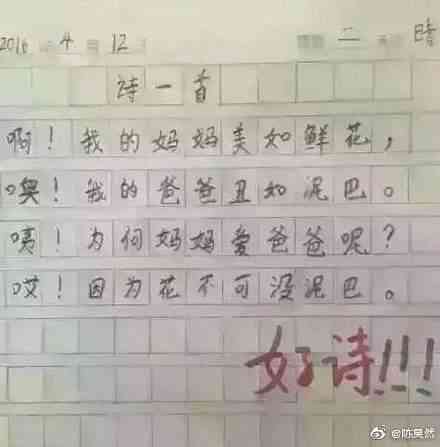 2016 年 4 月 12 日
二 晴
诗一首
啊!我的妈妈美如鲜花,
噢!我的爸爸丑如泥巴。
咦!为何妈妈爱爸爸呢?
哎!因为花不可没泥巴。
好诗!!!
@陈昊然